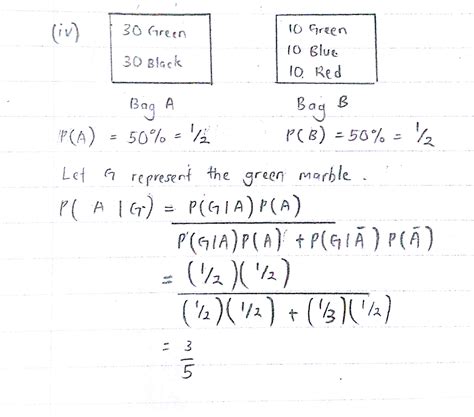 (iv)
30 Green
30 Black
10 Green
10 Blue
10 Red
Bag A
Bag B
P(A) = 50% = 1/2
P(B) = 50% = 1/2
Let G represent the green marble.
P( A | G) = P(G|A) P(A)
P(G|A) P(A) + P(G|Ā) P(Ā)
= (1/2)(1/2)
(1/2)(1/2) + (1/3)(1/2)
= 3
5